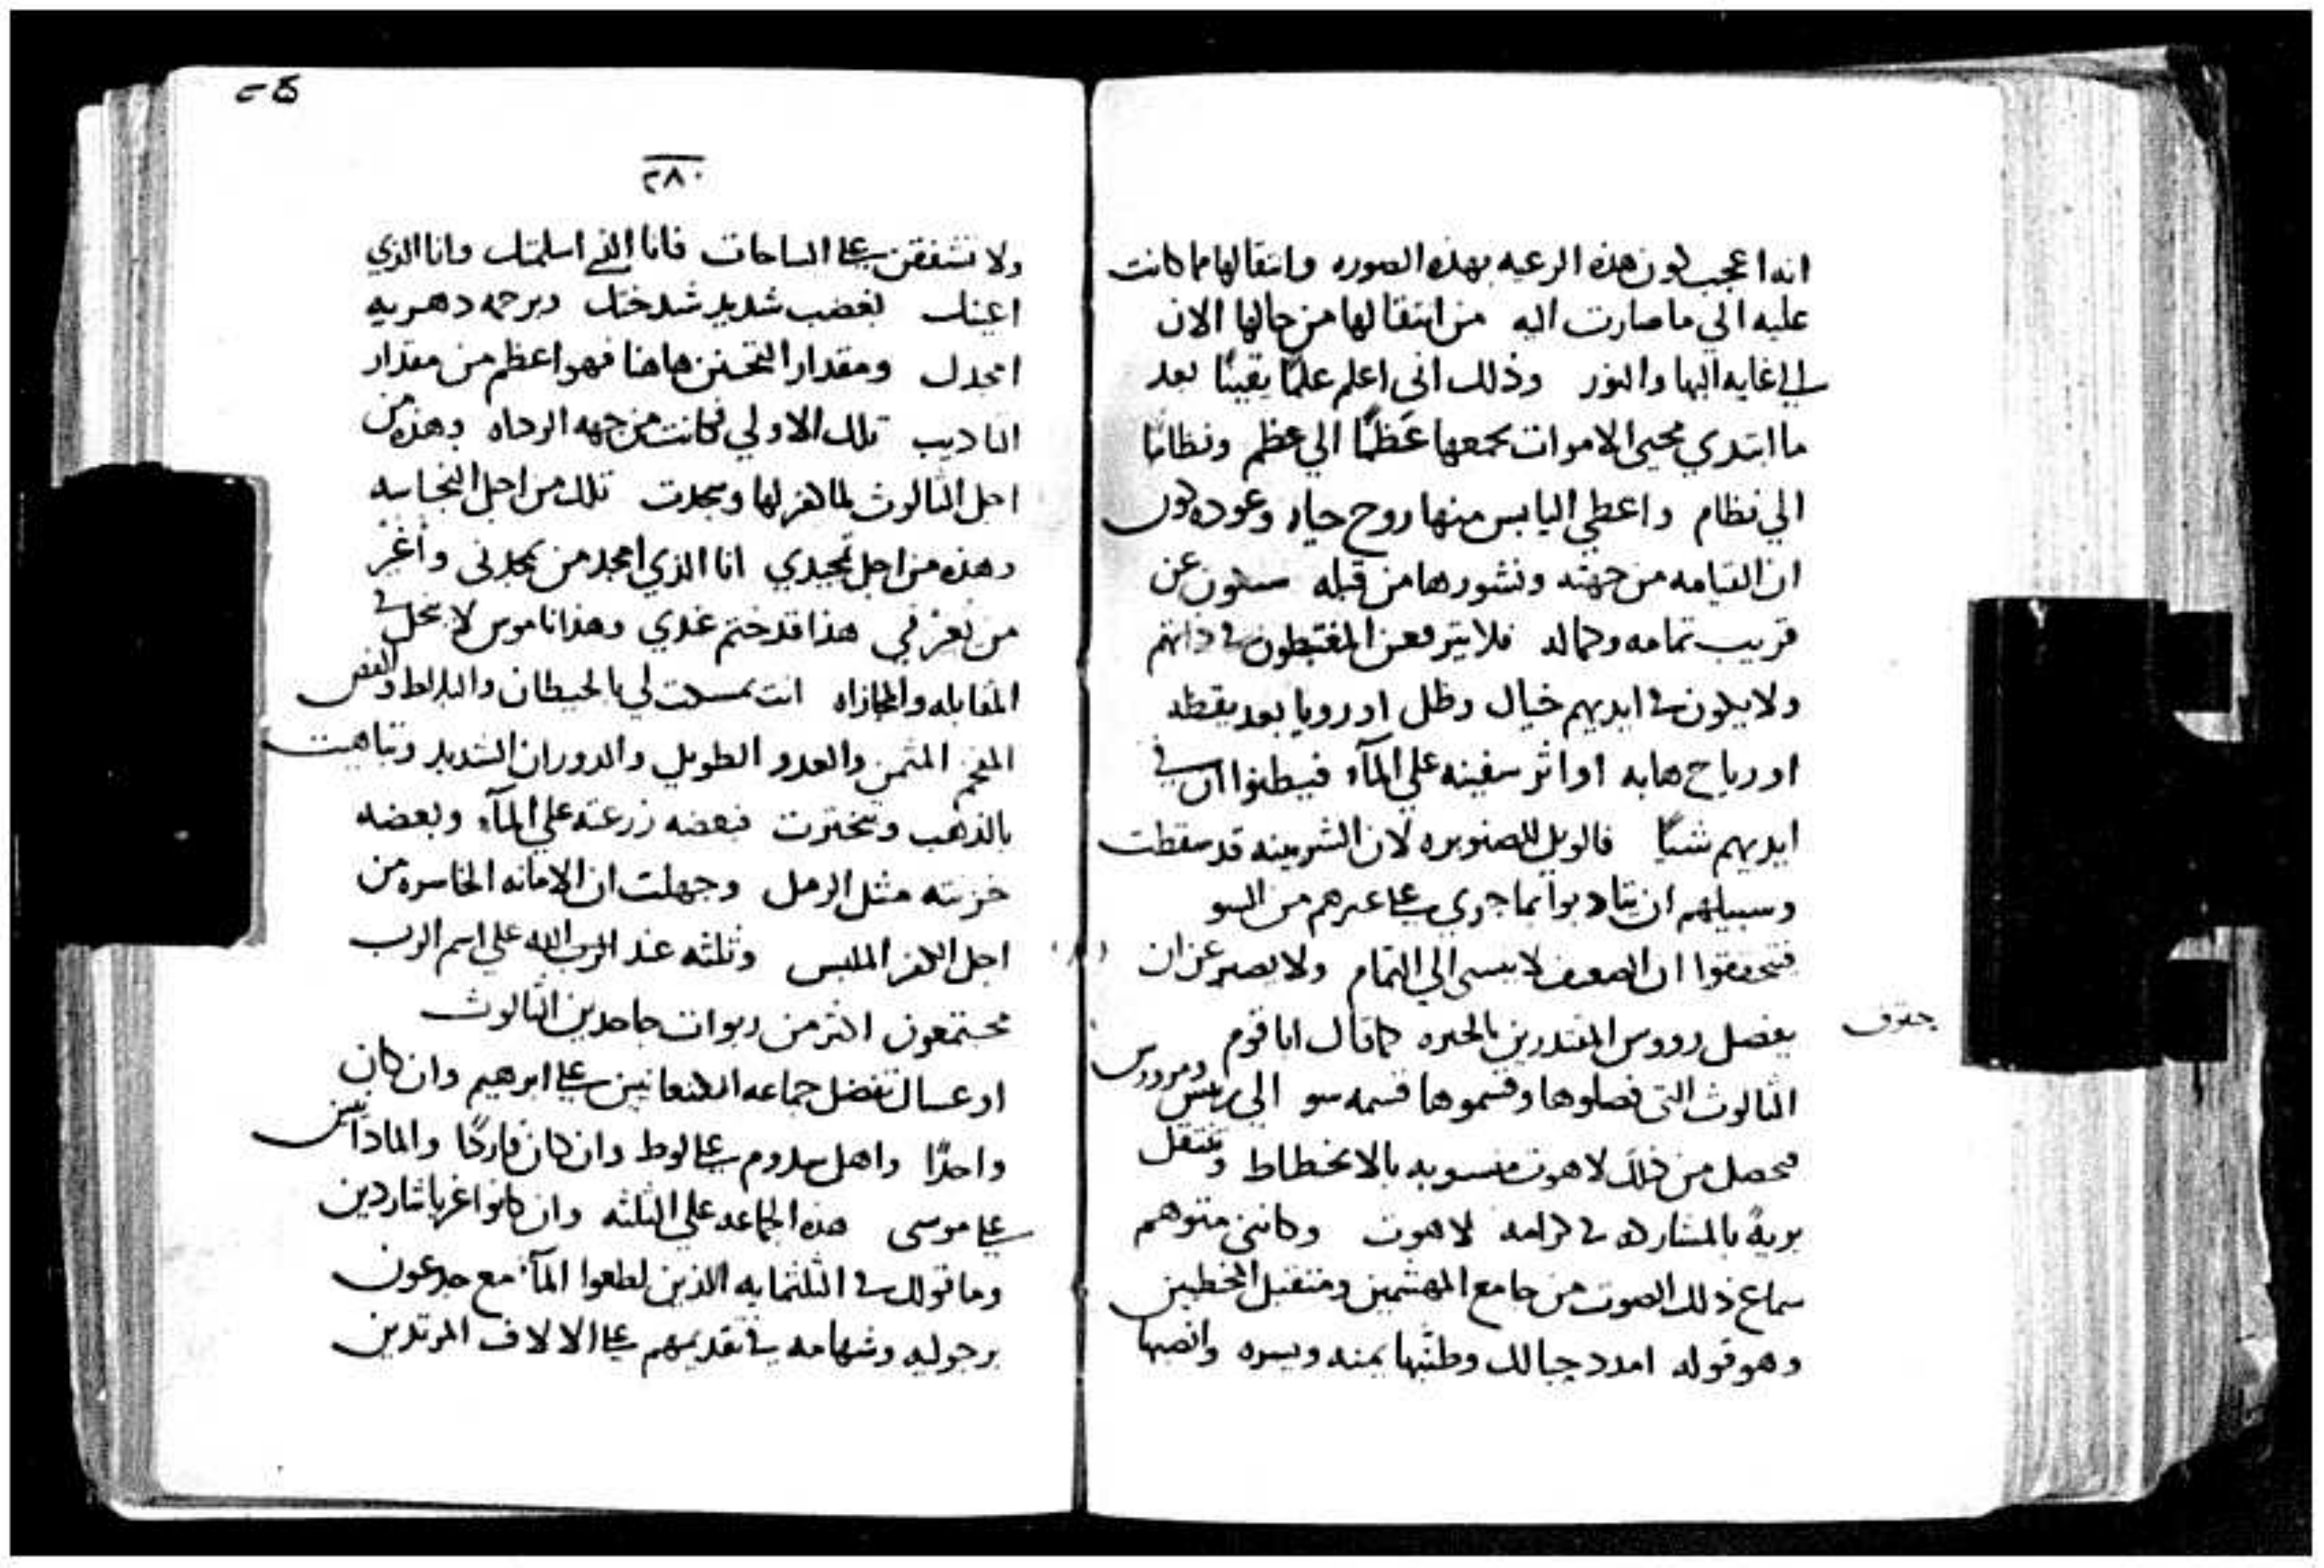 انه اعجب كون هذه الرعيه بهذه الصوره وانتقالها مما كانت
عليه الي ما صارت اليه من انتقالها من حالها الان
الي غايه البها والنور وذلك اني اعلم علمًا يقينًا بعد
ما ابتدي محيى الاموات بجمعها عَظمًا الي عظم ونظامًا
الي نظام واعطي اليابس منها روح حياه وعوده كون
ان القيامه من جهته ونشورها من قبله سيكون عن
قريب تمامه وكماله فلا يترفعن المغتبطون في ذاتهم
ولا يكون في ايديهم خيال وظل او رويا بعد يقظه
او رياح هابه او اثر سفينه علي المآء فيظنوا ان في
ايديهم شيًا فالويل للصنوبره لان الشربينه قد سقطت
وسبيلهم ان يتادبوا بما جري علي غيرهم من السو
فتحققوا ان الضعيف لا ينسى الي التمام ولا يصبر عن ان
يفصل رووس المقتدرين بالحيره كما قال انا قوم
حبقوق
الثالوث التي فصلوها وقسموها قسمه سو الي
فحصل من ذلك لاهوت منسوبه بالانحطاط وتنتقل
بريةً بالمشاركه في كرامه لاهوت وكانني متوهم
سماع ذلك الصوت من جامع المهشمين ومتقبل المخطين
وهو قوله امدد حبالك وطنبها يمنه ويسره وانصبها
٢٨٠
ولا تشفقن علي الساحات فانا الذي اسلمتك وانا الذي
اعينك بغضب شديد شدختك وبرحمه دهريه
امجدك ومقدار التحنن هاهنا فهو اعظم من مقدار
التاديب تلك الاولي فكانت من جهه الرداه وهذه من
اجل الثالوث لما كفر لها وسجدت تلك من اجل النجاسه
وهذه من اجل تمجيدي انا الذي امجد من يمجدني واُغيّر
من يغيّرني هذا قد ختم عندي وهذا ناموس لا يحل في
المقابله والمجازاه انت تمسكت لي بالحيطان والبلاط والفص
المفخم المثمن والعدو الطويل والدوران الشديد وتباهيت
بالذهب وتبخترت فبعضه زرعته علي المآء وبعضه
خزنته مثل الرمل وجهلت ان الامانه الخاسره من
اجل الكفر الملبس وثلثه عند الرب الاله علي اسم الرب
مجتمعون اكثر من ربوات جاحدين الثالوث
او عساك تفضل جماعه الكنعانيين علي ابرهيم وان كان
واحدًا واهل سدوم علي لوط وان كان فاردًا والمادانيين
علي موسى هذه الجماعه علي الثلثه وان كانوا غربا شاردين
وما قولك في الثلثمايه الذين لطعوا المآء مع جدعون
برجوليه وشهامه في تقديمهم علي الالاف المرتدين